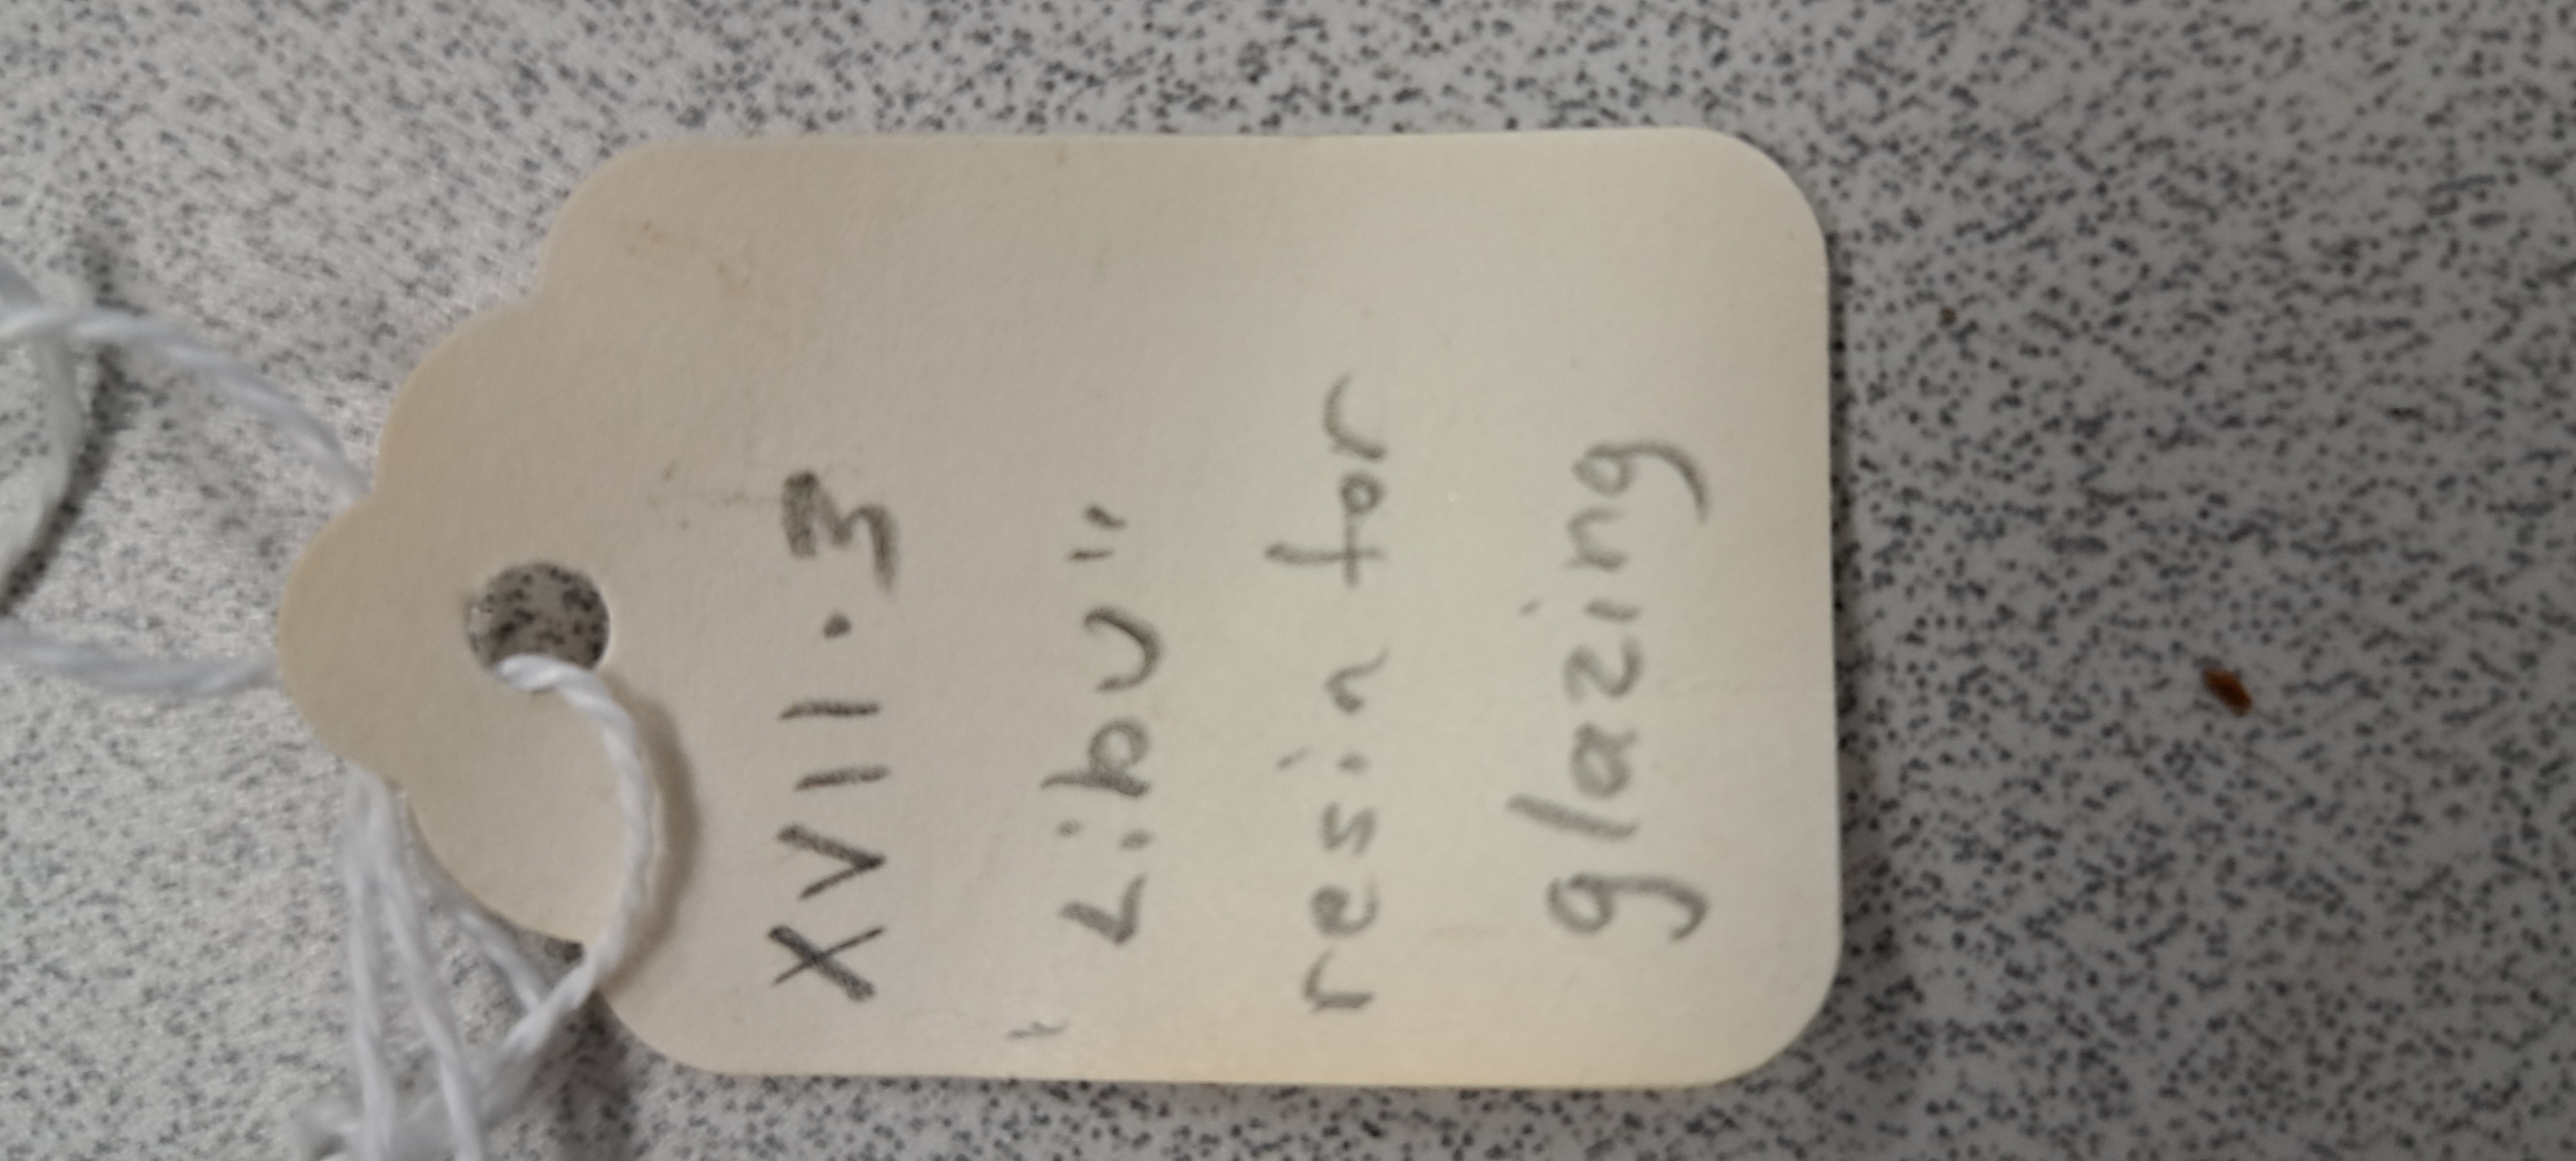 XVII.3
"Libu"
resin for
glazing